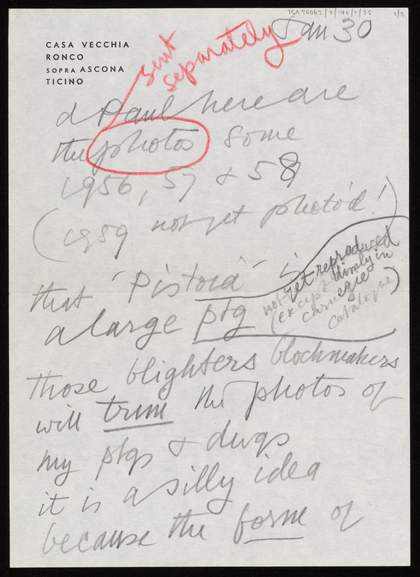 TGA 20067/
1/2
CASA VECCHIA
RONCO
SOPRA ASCONA
TICINO
Jan 30
sent
separately
d Paul here are
the photos some
1956, 57 & 58
(1959 not yet photo'd!)
that 'Pistoia' is
a large ptg
not yet reproduced
(except timely in
Carnegie
Catalogue)
those blighters blockmakers
will trim the photos of
my ptgs & dwgs
it is a silly idea
because the form of